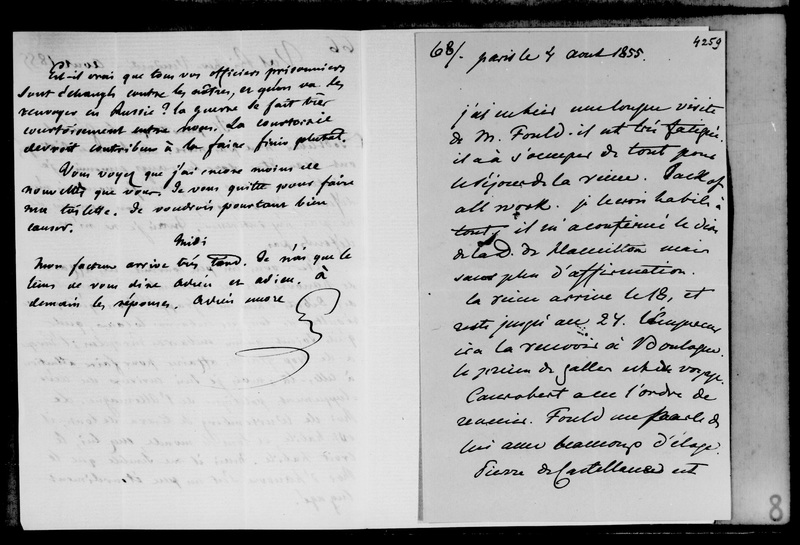 Est-il vrai que tous vos officiers prisonniers
sont échangés contre les nôtres, et qu'on va les
renvoyer en Russie ? la guerre se fait très
courtoisement entre nous. La courtoisie
devroit contribuer à la faire finir plutot.
Vous voyez que j'ai encore moins de
nouvelles que vous. Je vous quitte pour faire
ma toilette. Je voudrois pourtant bien
causer.
Midi
Mon facteur arrive très tard. Je n'ai que le
tems de vous dire adieu et adieu. à
demain les réponses. Adieu encore
68/. paris le 4 aout 1855.
4259
j'ai eu hier une longue visite
de M. Fould. il est très fatigué.
il a à s'occuper de tout pour
le séjour de la reine. Jack of
all work. je le crois habile à
tout, il m'a confirmé le dire
de la D. de Hamilton mais
sans plus d'affirmation.
la reine arrive le 18, et
reste jusqu'au 27. l'Empereur
ira la recevoir à Boulogne.
le prince de galles est du voyage.
Canrobert a eu l'ordre de
revenir. Fould me parle de
lui avec beaucoup d'éloge.
Pierre de Castellane est